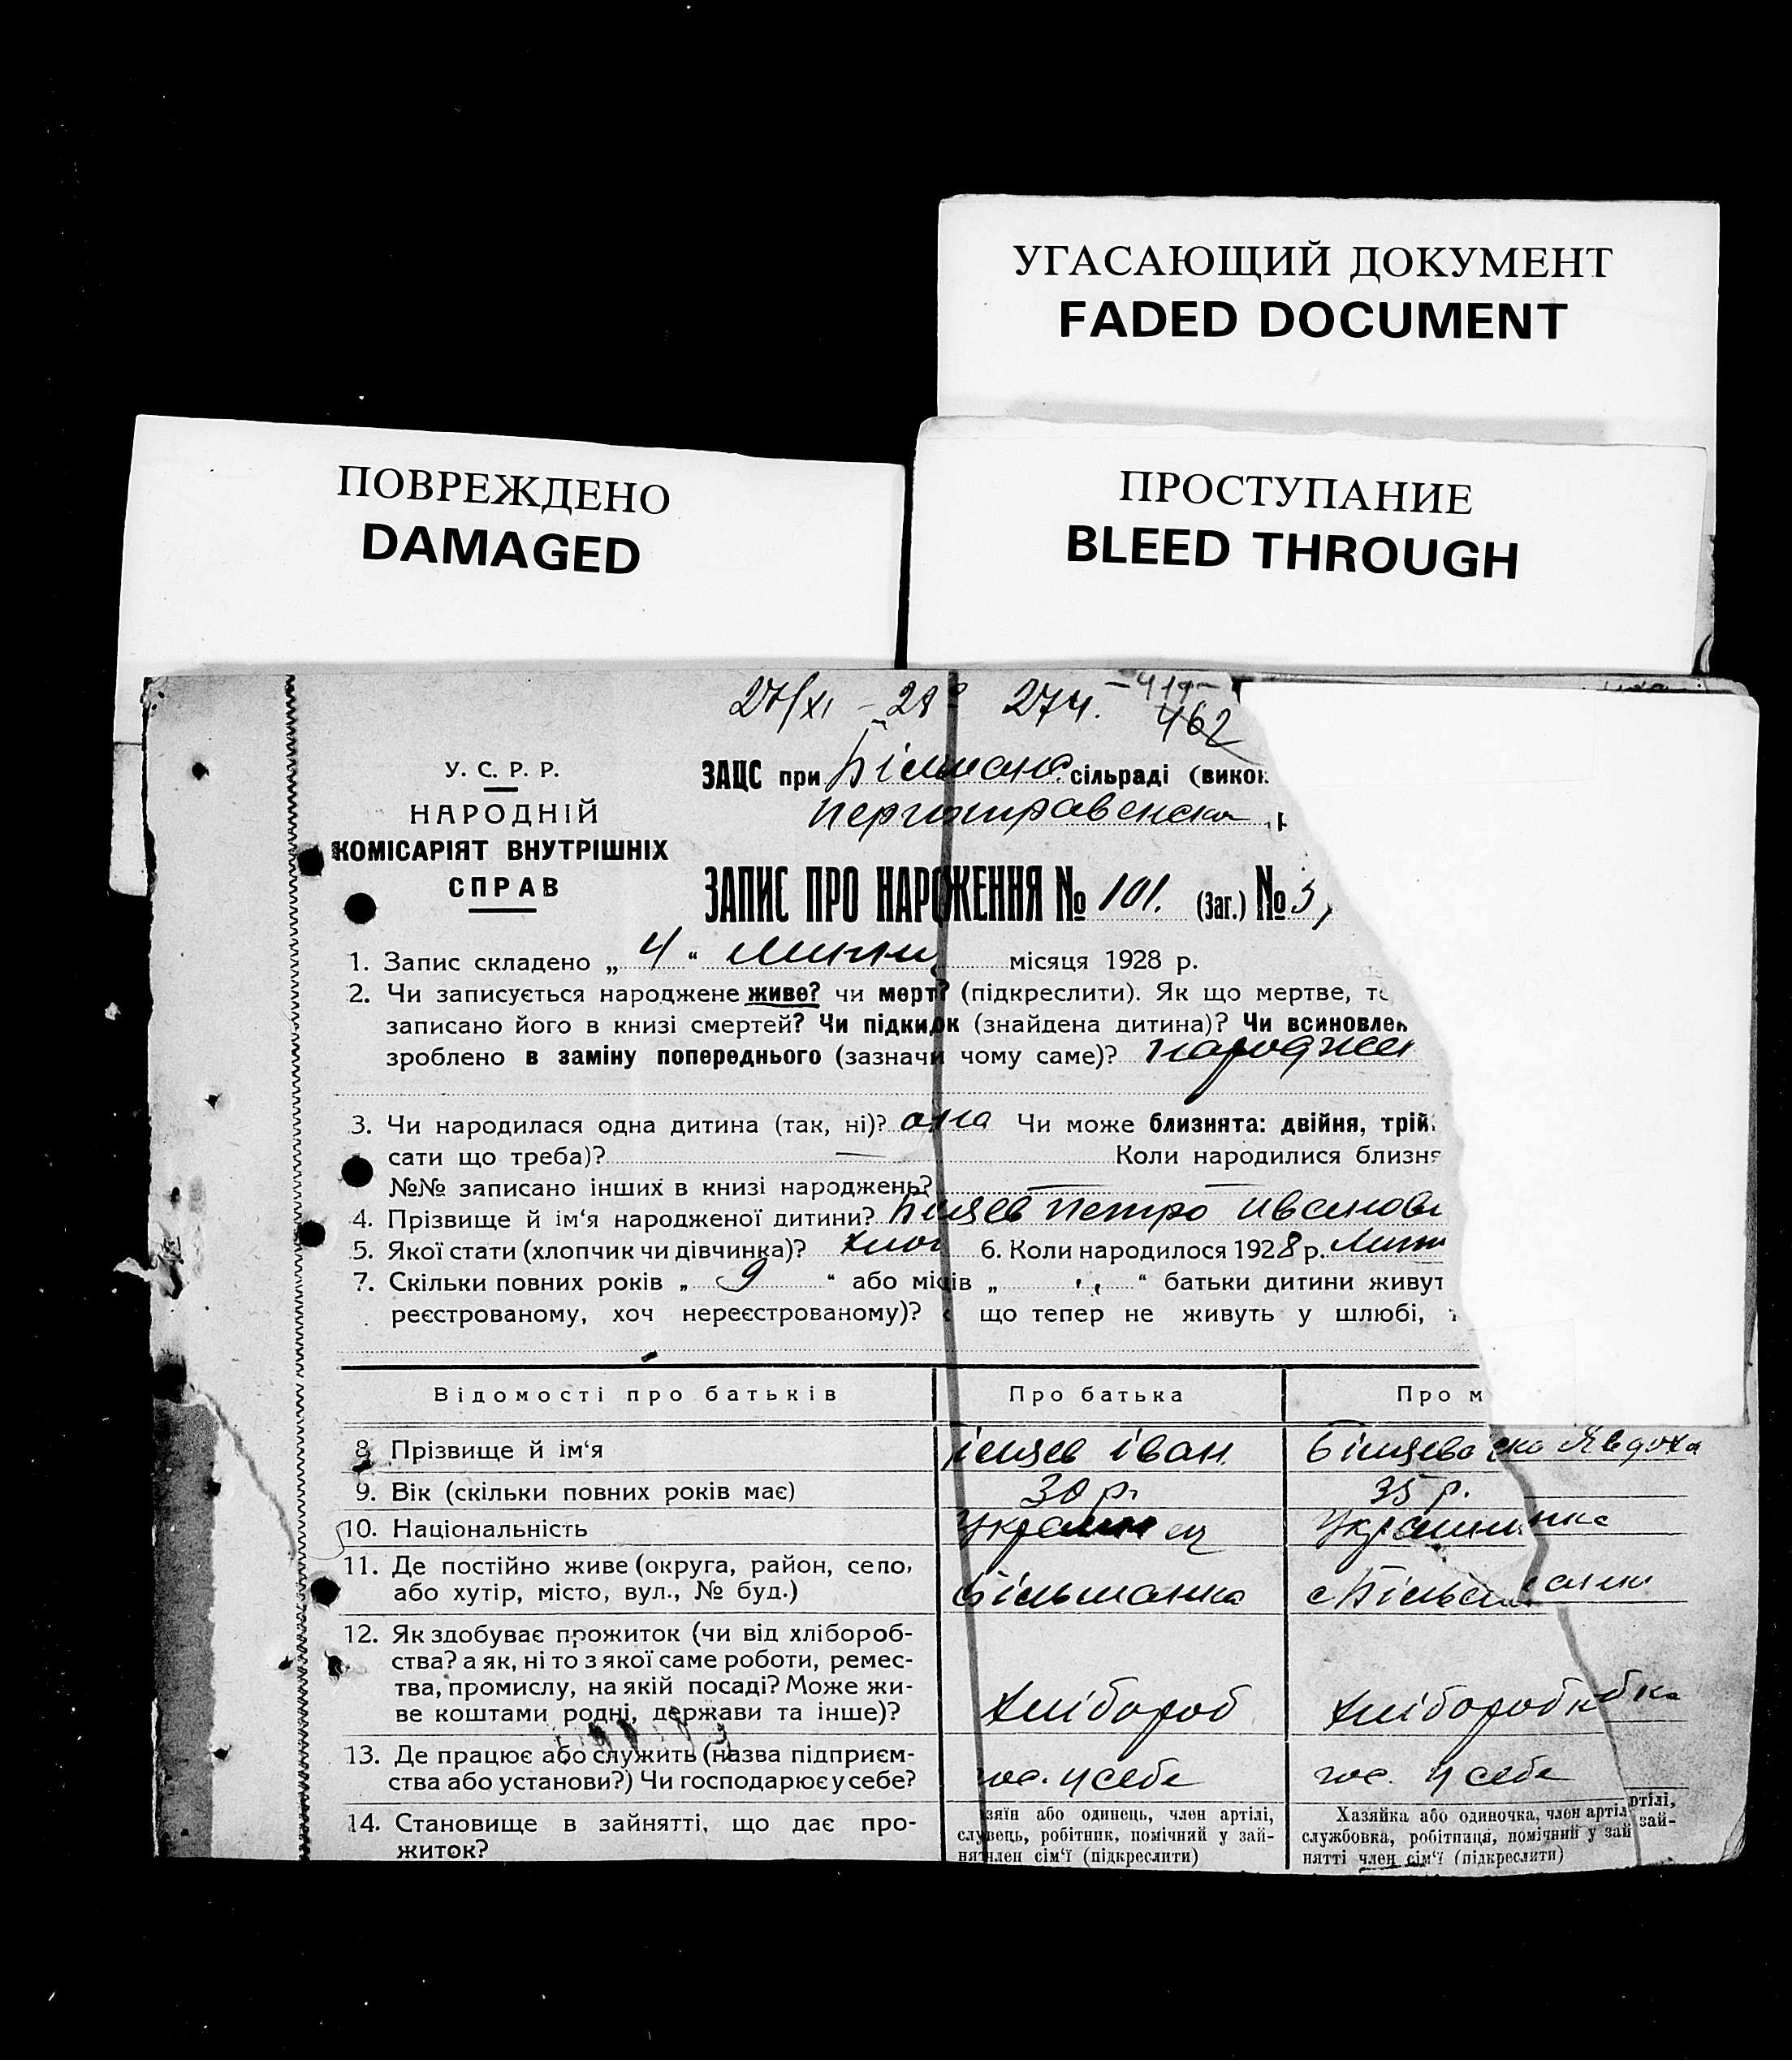 УГАСАЮЩИЙ ДОКУМЕНТ
FADED DOCUMENT
ПОВРЕЖДЕНО
DAMAGED
ПРОСТУПАНИЕ
BLEED THROUGH
27/XI - 28 274. 462
У. С. Р. Р.
НАРОДНІЙ
КОМІСАРІЯТ ВНУТРІШНІХ
СПРАВ
ЗАЦС при сільраді (вико
ЗАПИС ПРО НАРОЖЕННЯ № 101. (Заг.) №
1. Запис складено „ 4 “ місяця 1928 р.
2. Чи записується народжене живе? чи мерт? (підкреслити). Як що мертве,
записано його в книзі смертей? Чи підкидк (знайдена дитина)? Чи всиновлен
зроблено в заміну попереднього (зазначи чому саме)? народжен
3. Чи народилася одна дитина (так, ні)? Чи може близнята: двійня, трій
сати що треба)? Коли народилися близня
№№ записано інших в книзі народжень?
4. Прізвище й ім‘я народженої дитини? Петро Иванови
5. Якої стати (хлопчик чи дівчинка)? хлоп 6. Коли народилося 1928 р.
7. Скільки повних років „ 9 “ або міців „ “ батьки дитини живут
реєстрованому, хоч нереєстрованому)? що тепер не живуть у шлюбі,
Відомості про батьків Про батька Про м
8. Прізвище й ім‘я іван
9. Вік (скільки повних років має) 30 р. 35 р.
10. Національність Українец Українка
11. Де постійно живе (округа, район, село,
або хутір, місто, вул., № буд.) Більманка
12. Як здобуває прожиток (чи від хлібороб-
ства? а як, ні то з якої саме роботи, ремес-
тва, промислу, на якій посаді? Може жи-
ве коштами родні, держави та інше)? хлібороб хлібороб
13. Де працює або служить (назва підприєм-
ства або установи?) Чи господарює у себе? гос. у себе гос. у себе
14. Становище в зайнятті, що дає про-
житок?
зяїн або одинець, член артілі,
службовець, робітник, помічний у зай-
нятлен сім‘ї (підкреслити)
Хазяйка або одиночка, член артіл
службовка, робітниця, помічний у зай
нятті член сім‘ї (підкреслити)
ртілі,
зай-